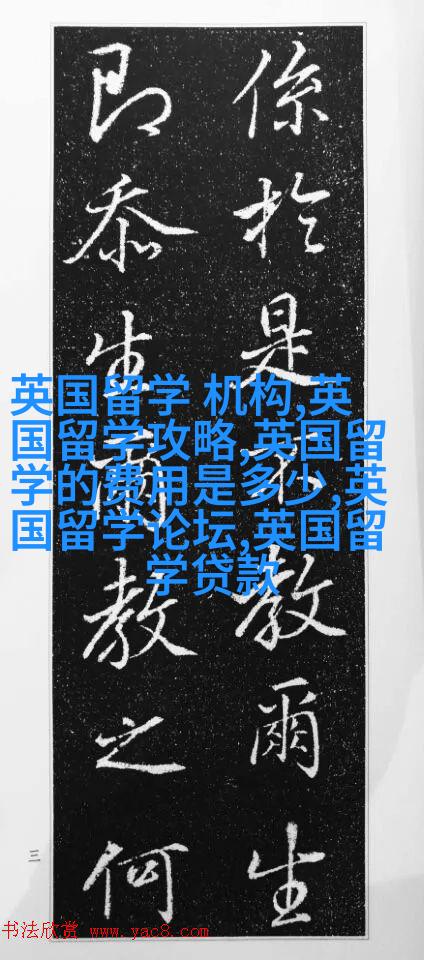 係於是不教爾生
即忝生爾教之何
英国留学 机构,英
国留学攻略,英国留
学的费用是多少,英
国留学论坛,英国留
学贷款
三
书法欣赏 www.yac8.com